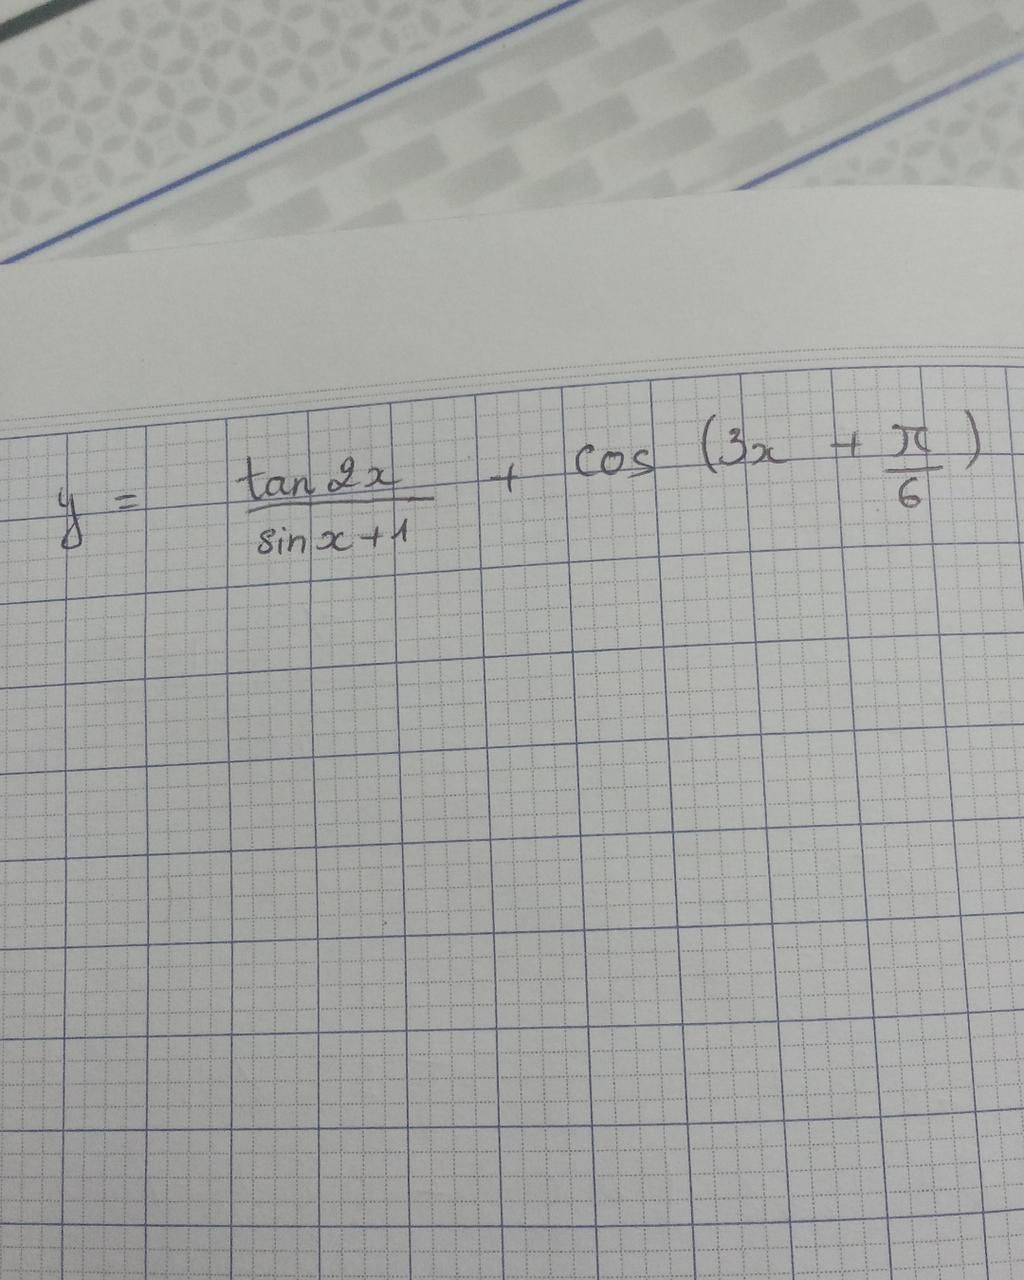 y = \frac{tan 2x}{sin x + 1} + cos (3x + \frac{π}{6})